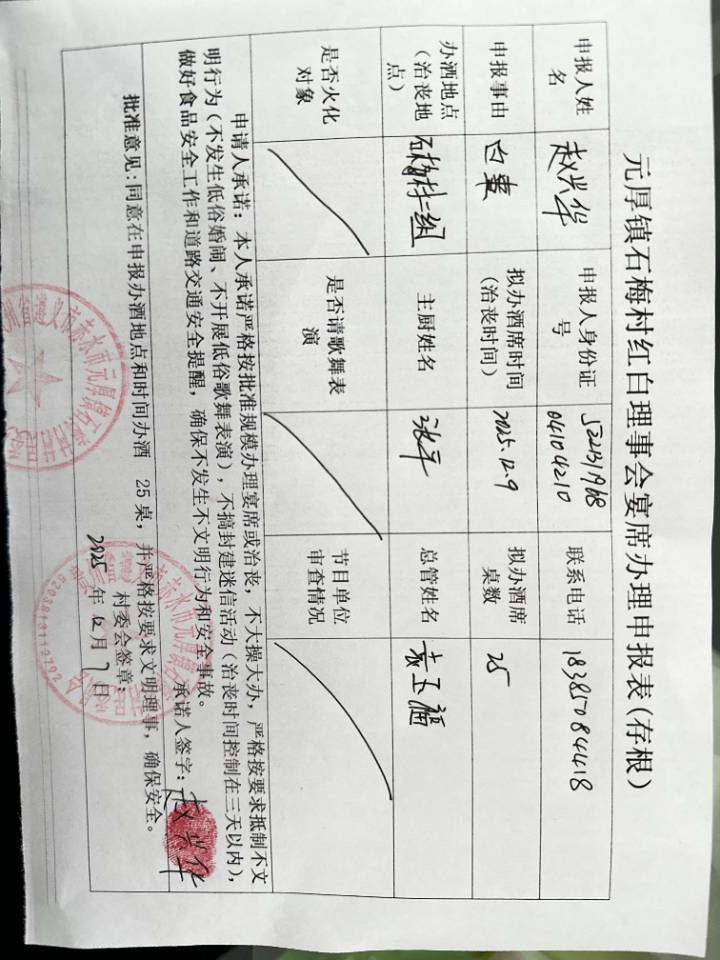 元厚镇石梅村红白理事会宴席办理申报表（存根）
申报人姓名 赵兴华 申报人身份证号 52213119680410 4210 联系电话 18385084418
申报事由 白事 拟办酒席时间（治丧时间） 2025.12.9 拟办酒席桌数 25
办酒地点（治丧地点） 石梅村二组 主厨姓名 总管姓名 袁玉福
是否火化对象 是否请歌舞表演 节目单位审查情况
申请人承诺：本人承诺严格按批准规模办理宴席或治丧，不大操大办，严格按要求抵制不文
明行为（不发生低俗婚闹、不开展低俗歌舞表演），不搞封建迷信活动（治丧时间控制在三天以内），
做好食品安全工作和道路交通安全提醒，确保不发生不文明行为和安全事故。
承诺人签字：赵兴华
批准意见：同意在申报办酒地点和时间办酒 25 桌，并严格按要求文明理事，确保安全。
村委会签章：
2025年12月7日